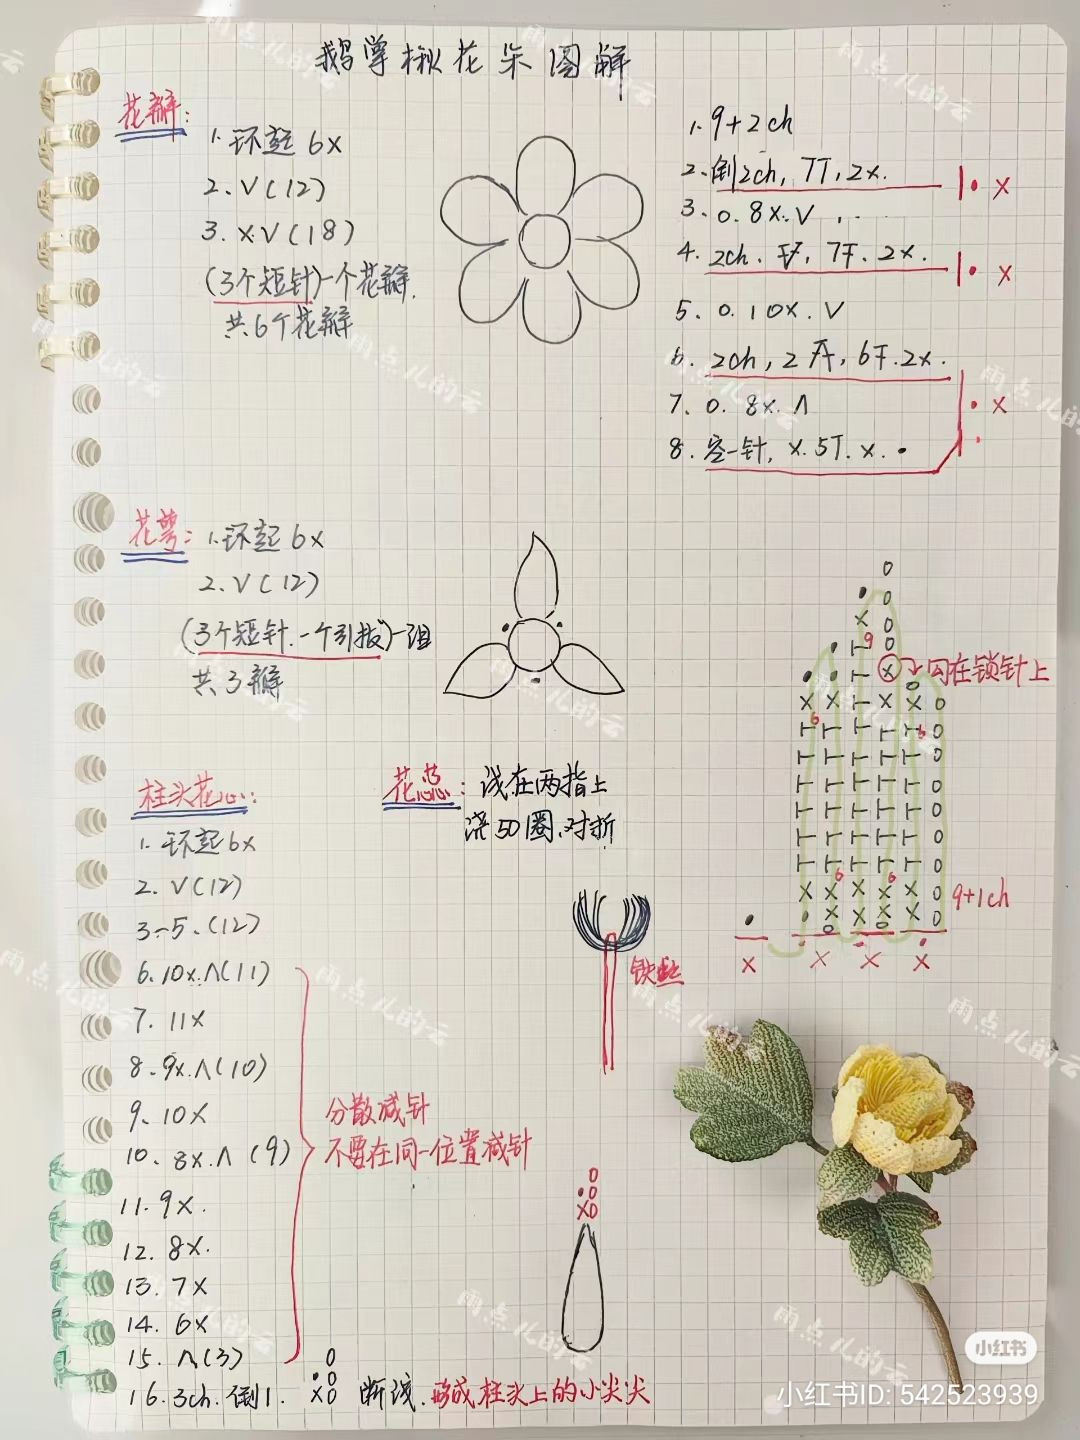 鹅掌楸花朵图解
花瓣:
1.环起6x
2.V(12)
3.x.V(18)
(3个短针)一个花瓣.
共6个花瓣
1.9+2ch
2.倒2ch, 7T, 2x.
3.0.8x.V
4.2ch.
, 7
. 2x.
5.0.10x.V
6.2ch, 2
, 6
.2x.
7.0.8x.Λ
8.空一针, x.5T.x.•
|• x
|• x
• x
花萼:
1.环起6x
2.V(12)
(3个短针.一个引拔)一组
共3瓣
勾在锁针上
9+1ch
x x x x
柱头花心:
1.环起6x
2.V(12)
3-5.(12)
6.10x.Λ(11)
7.11x
8.9x.Λ(10)
9.10x
10.8x.Λ(9)
11.9x.
12.8x.
13.7x
14.6x
15.Λ(3)
16.3ch.倒1.
断线.形成柱头上的小尖尖
分散减针
不要在同一位置减针
花蕊: 线在两指上
绕50圈、对折
铁丝
小红书
小红书ID: 542523939
雨点儿的云